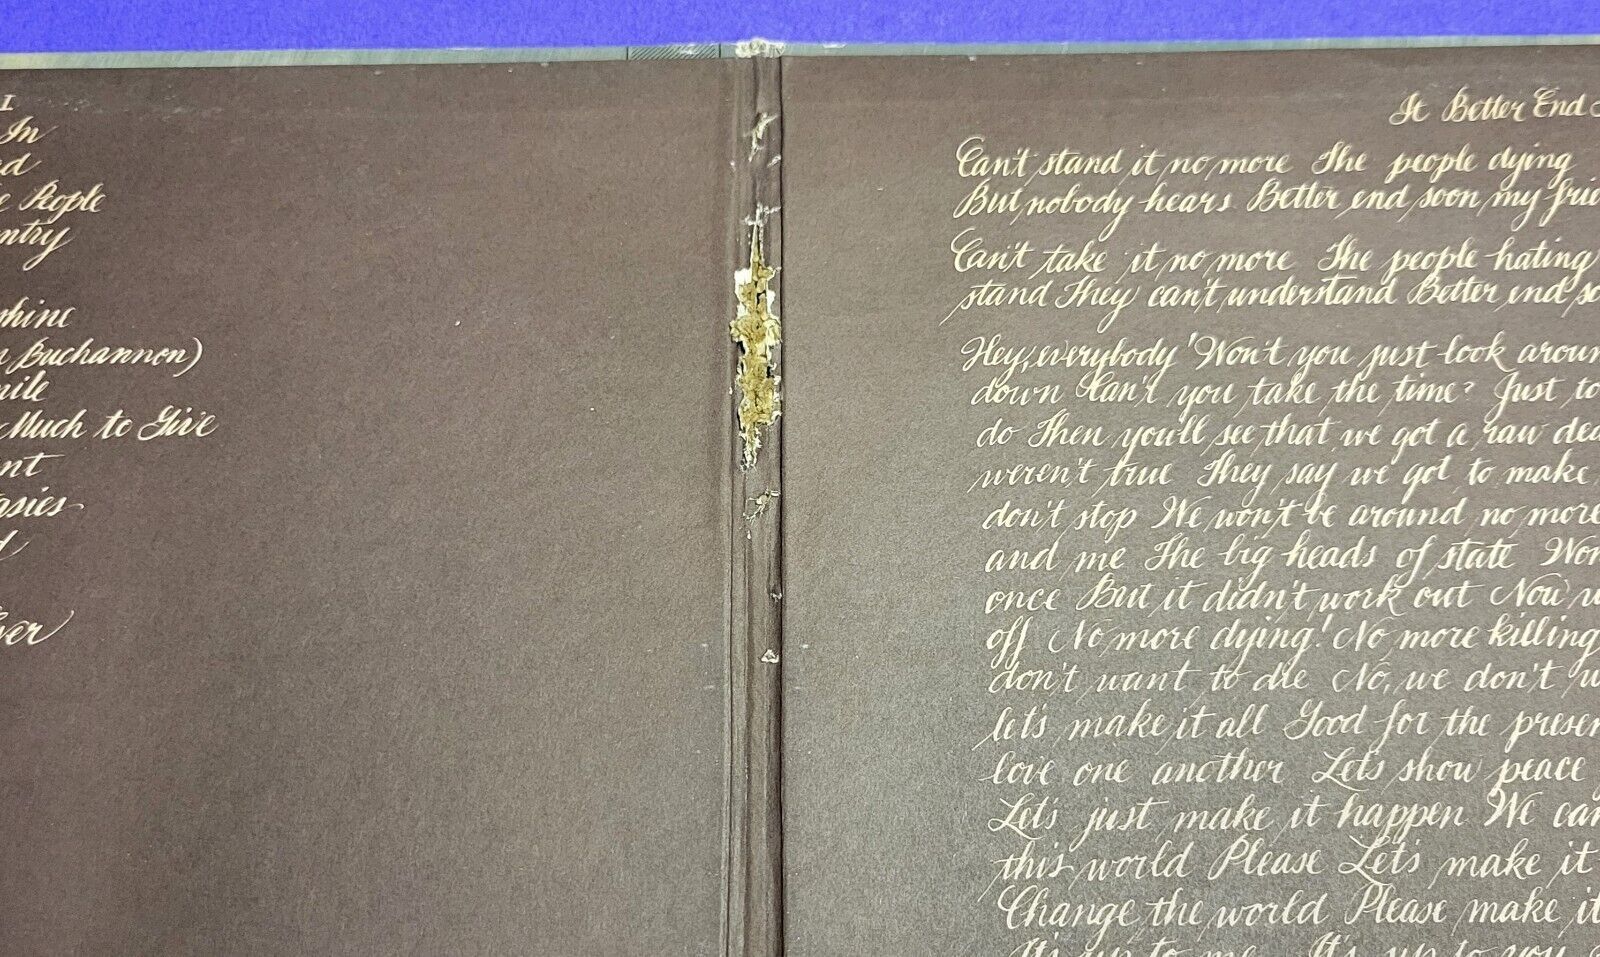 I
In
ed
e People
ntry
shine
n Buchannon)
mile
Much to Give
nt
tasies
d
ver
It Better End S
Can't stand it no more The people dying
But nobody hears Better end soon my frie
Can't take it no more The people hating
stand They can't understand Better end so
Hey, everybody Won't you just look aroun
down Can't you take the time? Just to
do Then you'll see that we got a raw dea
weren't true They say we got to make
don't stop We won't be around no more
and me The big heads of state Won
once But it didn't work out Now w
off No more dying! No more killing
don't want to die No, we don't w
let's make it all Good for the presen
love one another Let's show peace
Let's just make it happen We can
this world Please Let's make it
Change the world Please make it
It's up to me It's up to you